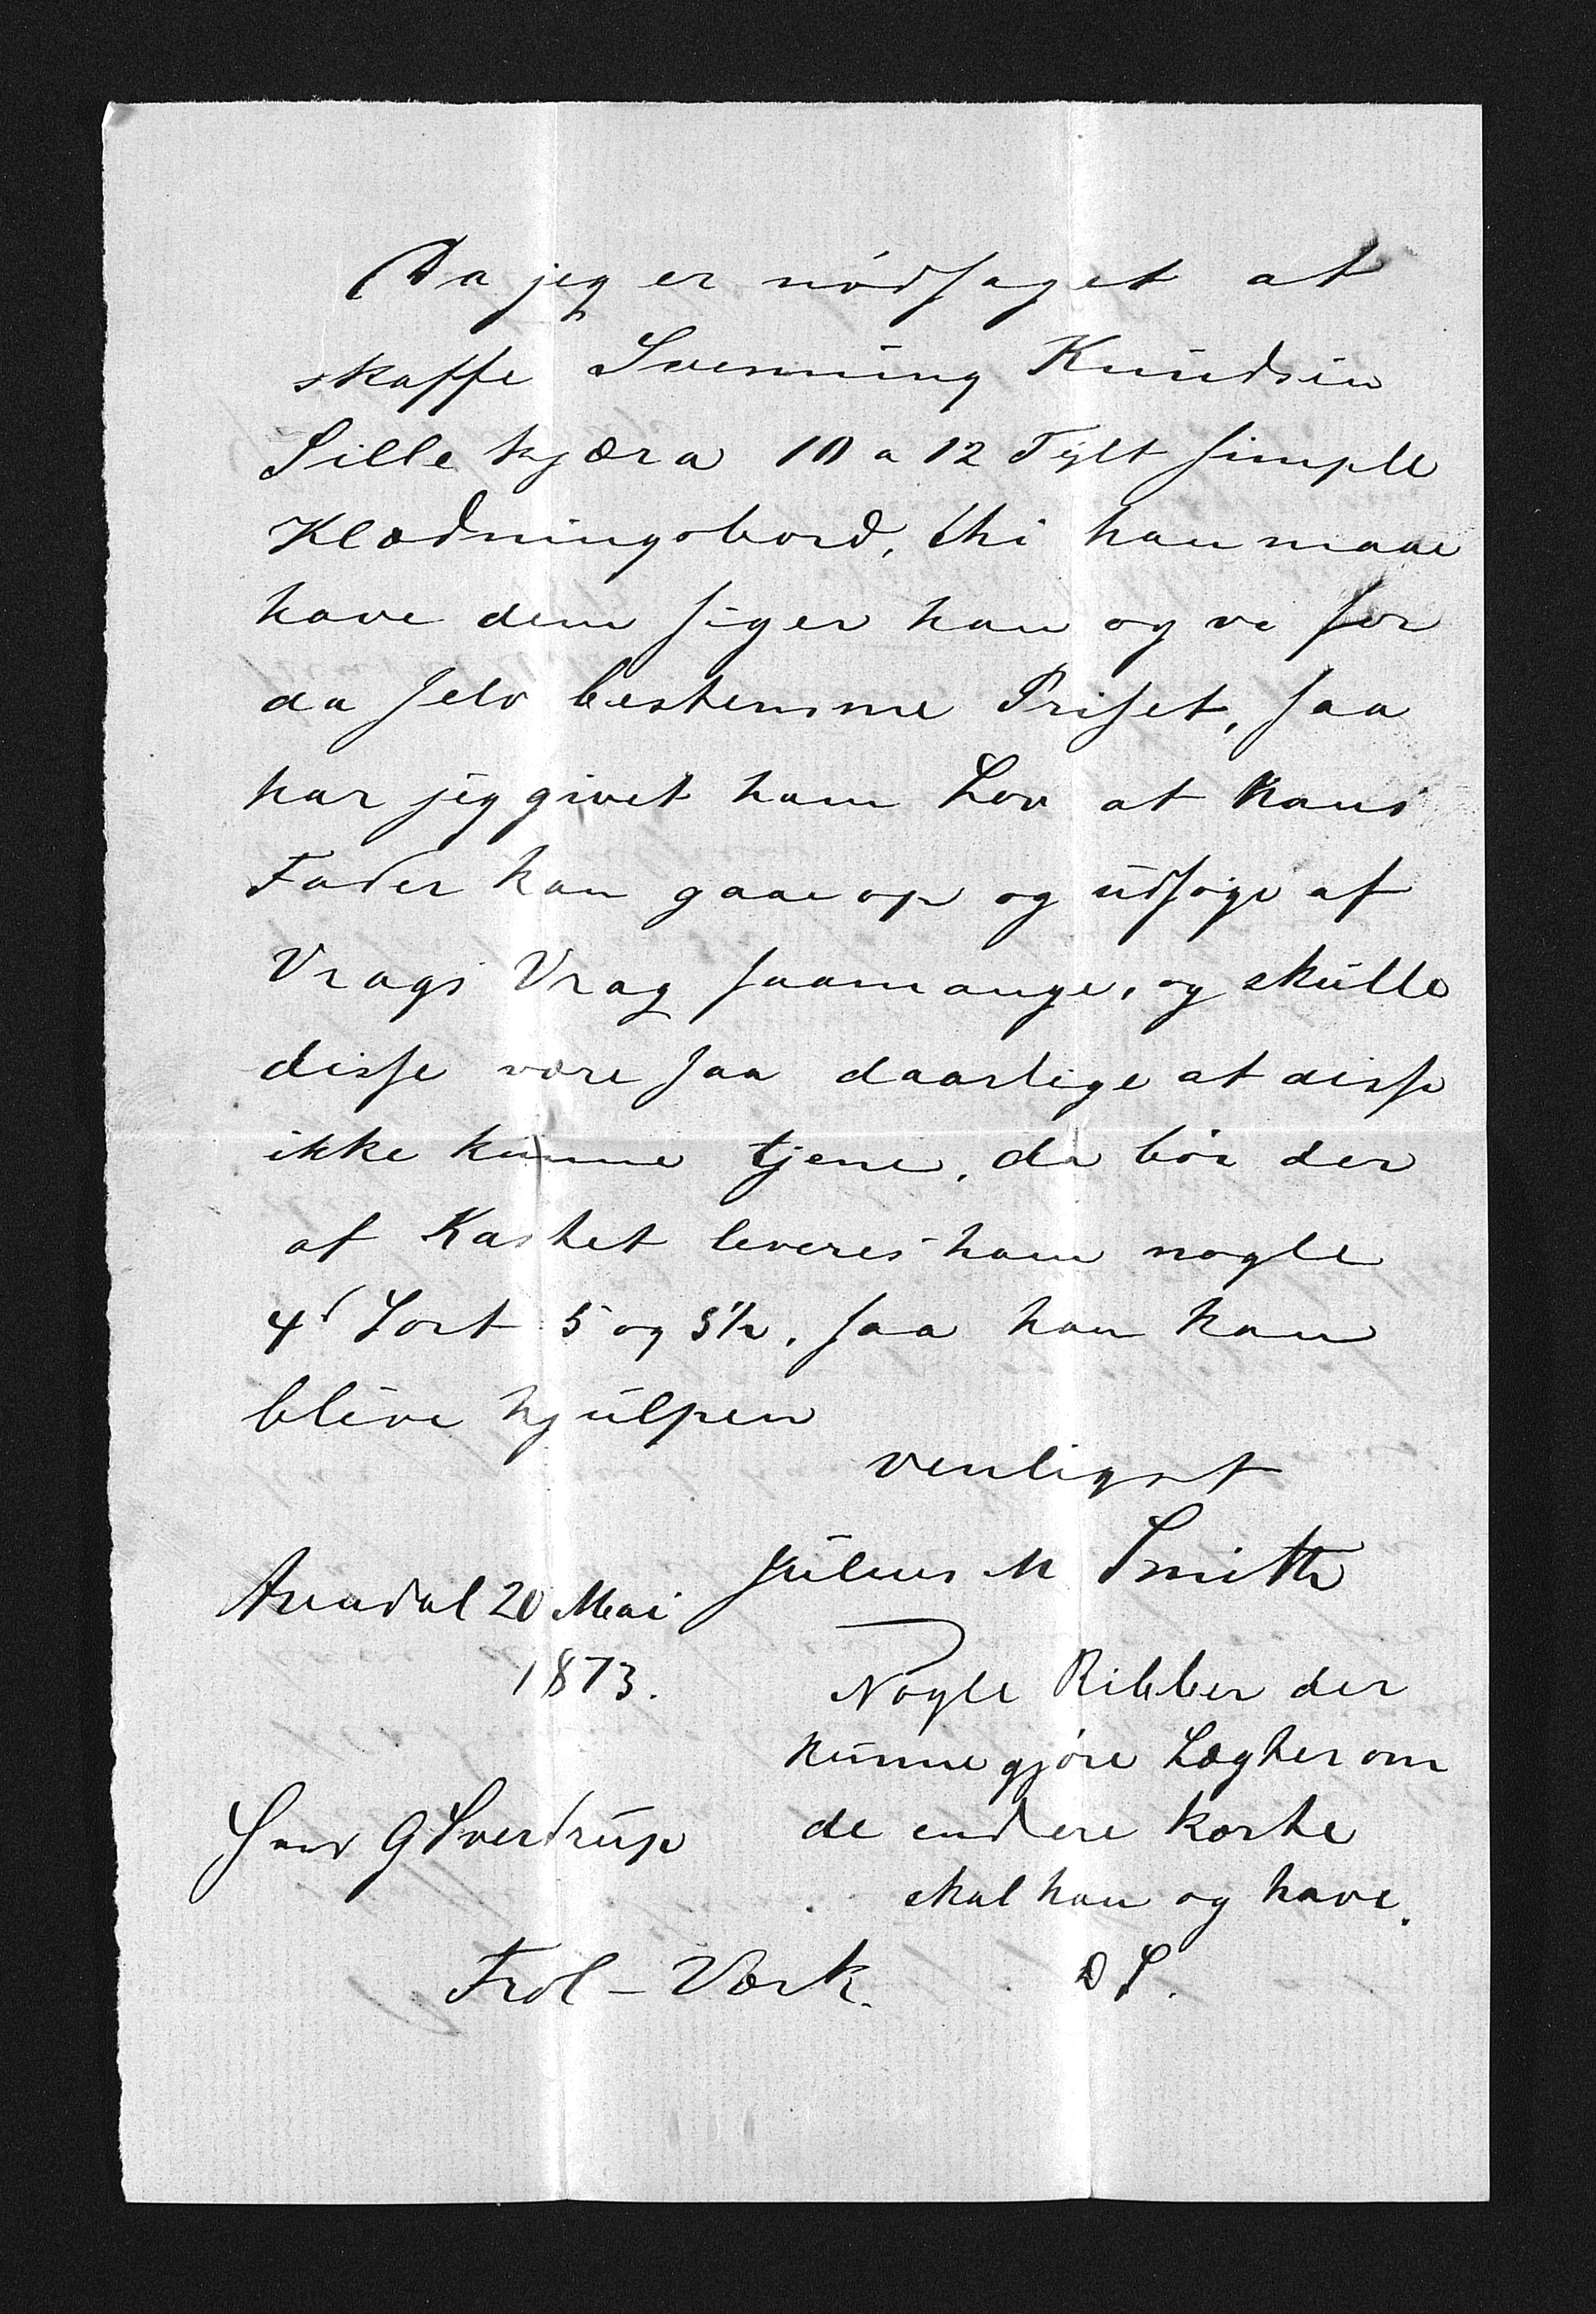 Da jeg er nödsaget at
skaffe Svenning Knudsen
Lille kjæra 10 a 12 Tylt simple
Klædningsbord, thi han maae
have dem siger han og vi for
da selv bestemme Priset, saa
har jeg givet ham Lov at hans
Fader kan gaae op og udsøge af
Vrags Vrag saamange, og skulle
disse være saa daarlige at disse
ikke kunne tjene, da bör der
af Kastet leveres ham nogle
4d Sort 5 og 5½, saa han kan
blive hjulpen
venligst
Julius M Smith
Arendal 20 Mai
1873.
Nogle Ribber der
kunne gjöre Lægter om
de endere korte
skal han og have.
D S.
Herr G Sverdrup
Frol - Værk.